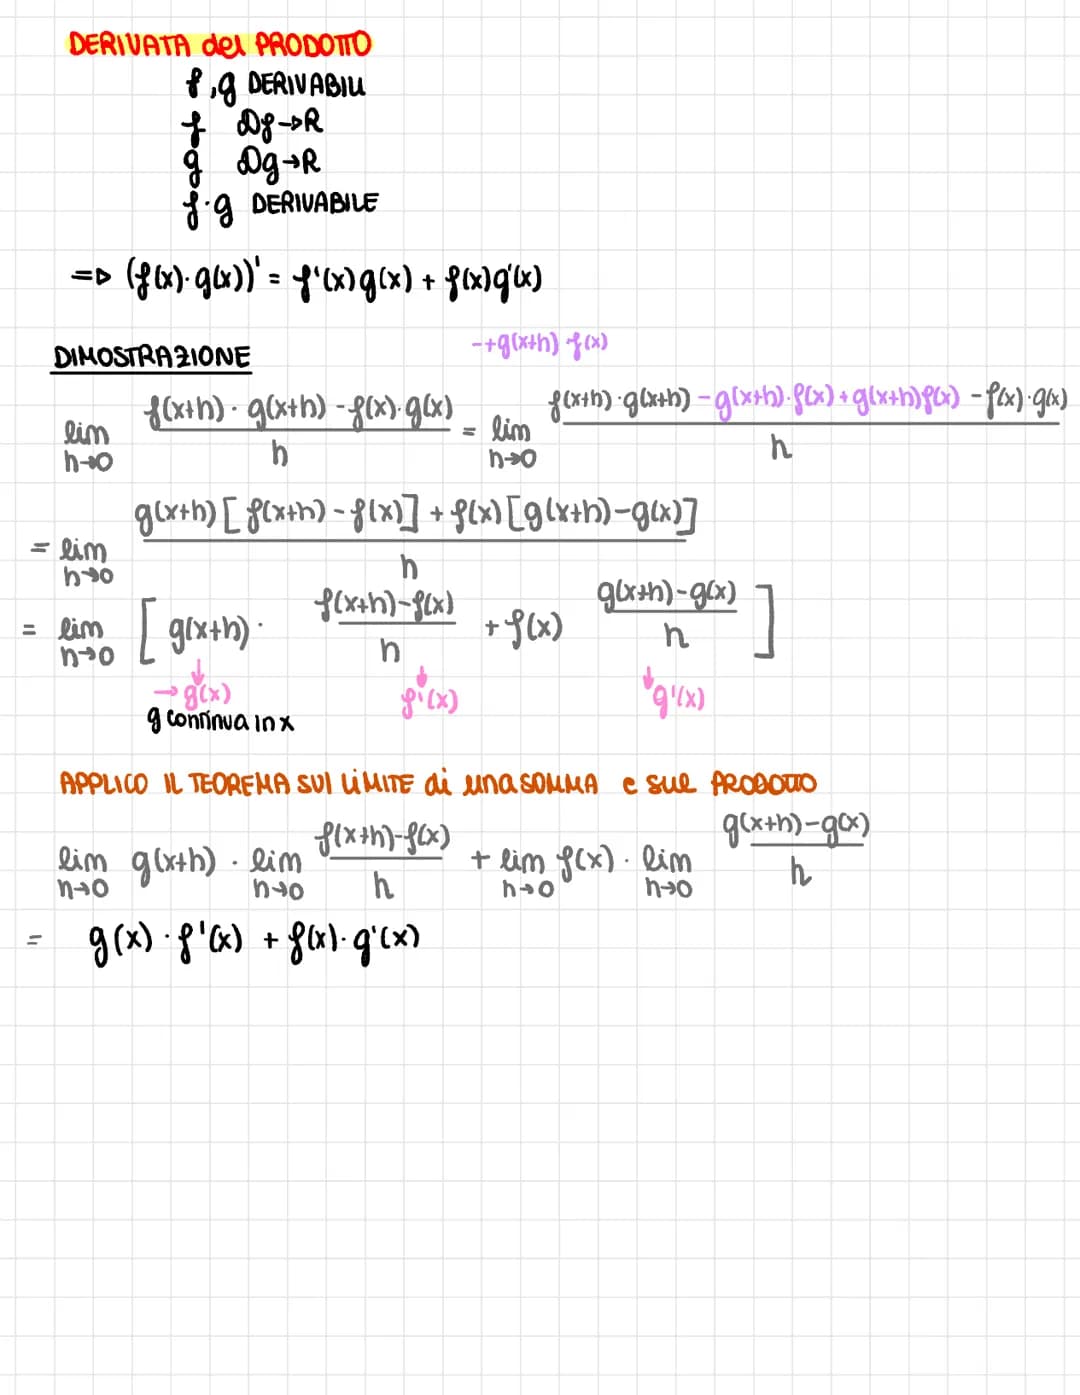 DERIVATA del PRODOTTO
f,g DERIVABILI
f Df→R
g Dg→R
f·g DERIVABILE
=> (f(x)·g(x))' = f'(x)g(x) + f(x)g'(x)
-+g(x+h) f(x)
DIMOSTRAZIONE
lim h→0 f(x+h)·g(x+h) - f(x)·g(x) / h = lim h→0 f(x+h)·g(x+h) - g(x+h)·f(x) + g(x+h)f(x) - f(x)·g(x) / h
= lim h→0 g(x+h)[f(x+h) - f(x)] + f(x)[g(x+h)-g(x)] / h
= lim h→0 [ g(x+h)· f(x+h)-f(x) / h + f(x) g(x+h)-g(x) / h ]
↓ ↓ ↓
→ g(x) f'(x) g'(x)
g continua in x
APPLICO IL TEOREMA SUl LiMITE di una SOMMA e sul PRODOTTO
lim h→0 g(x+h) · lim h→0 f(x+h)-f(x) / h + lim h→0 f(x) · lim h→0 g(x+h)-g(x) / h
= g(x)·f'(x) + f(x)·g'(x)